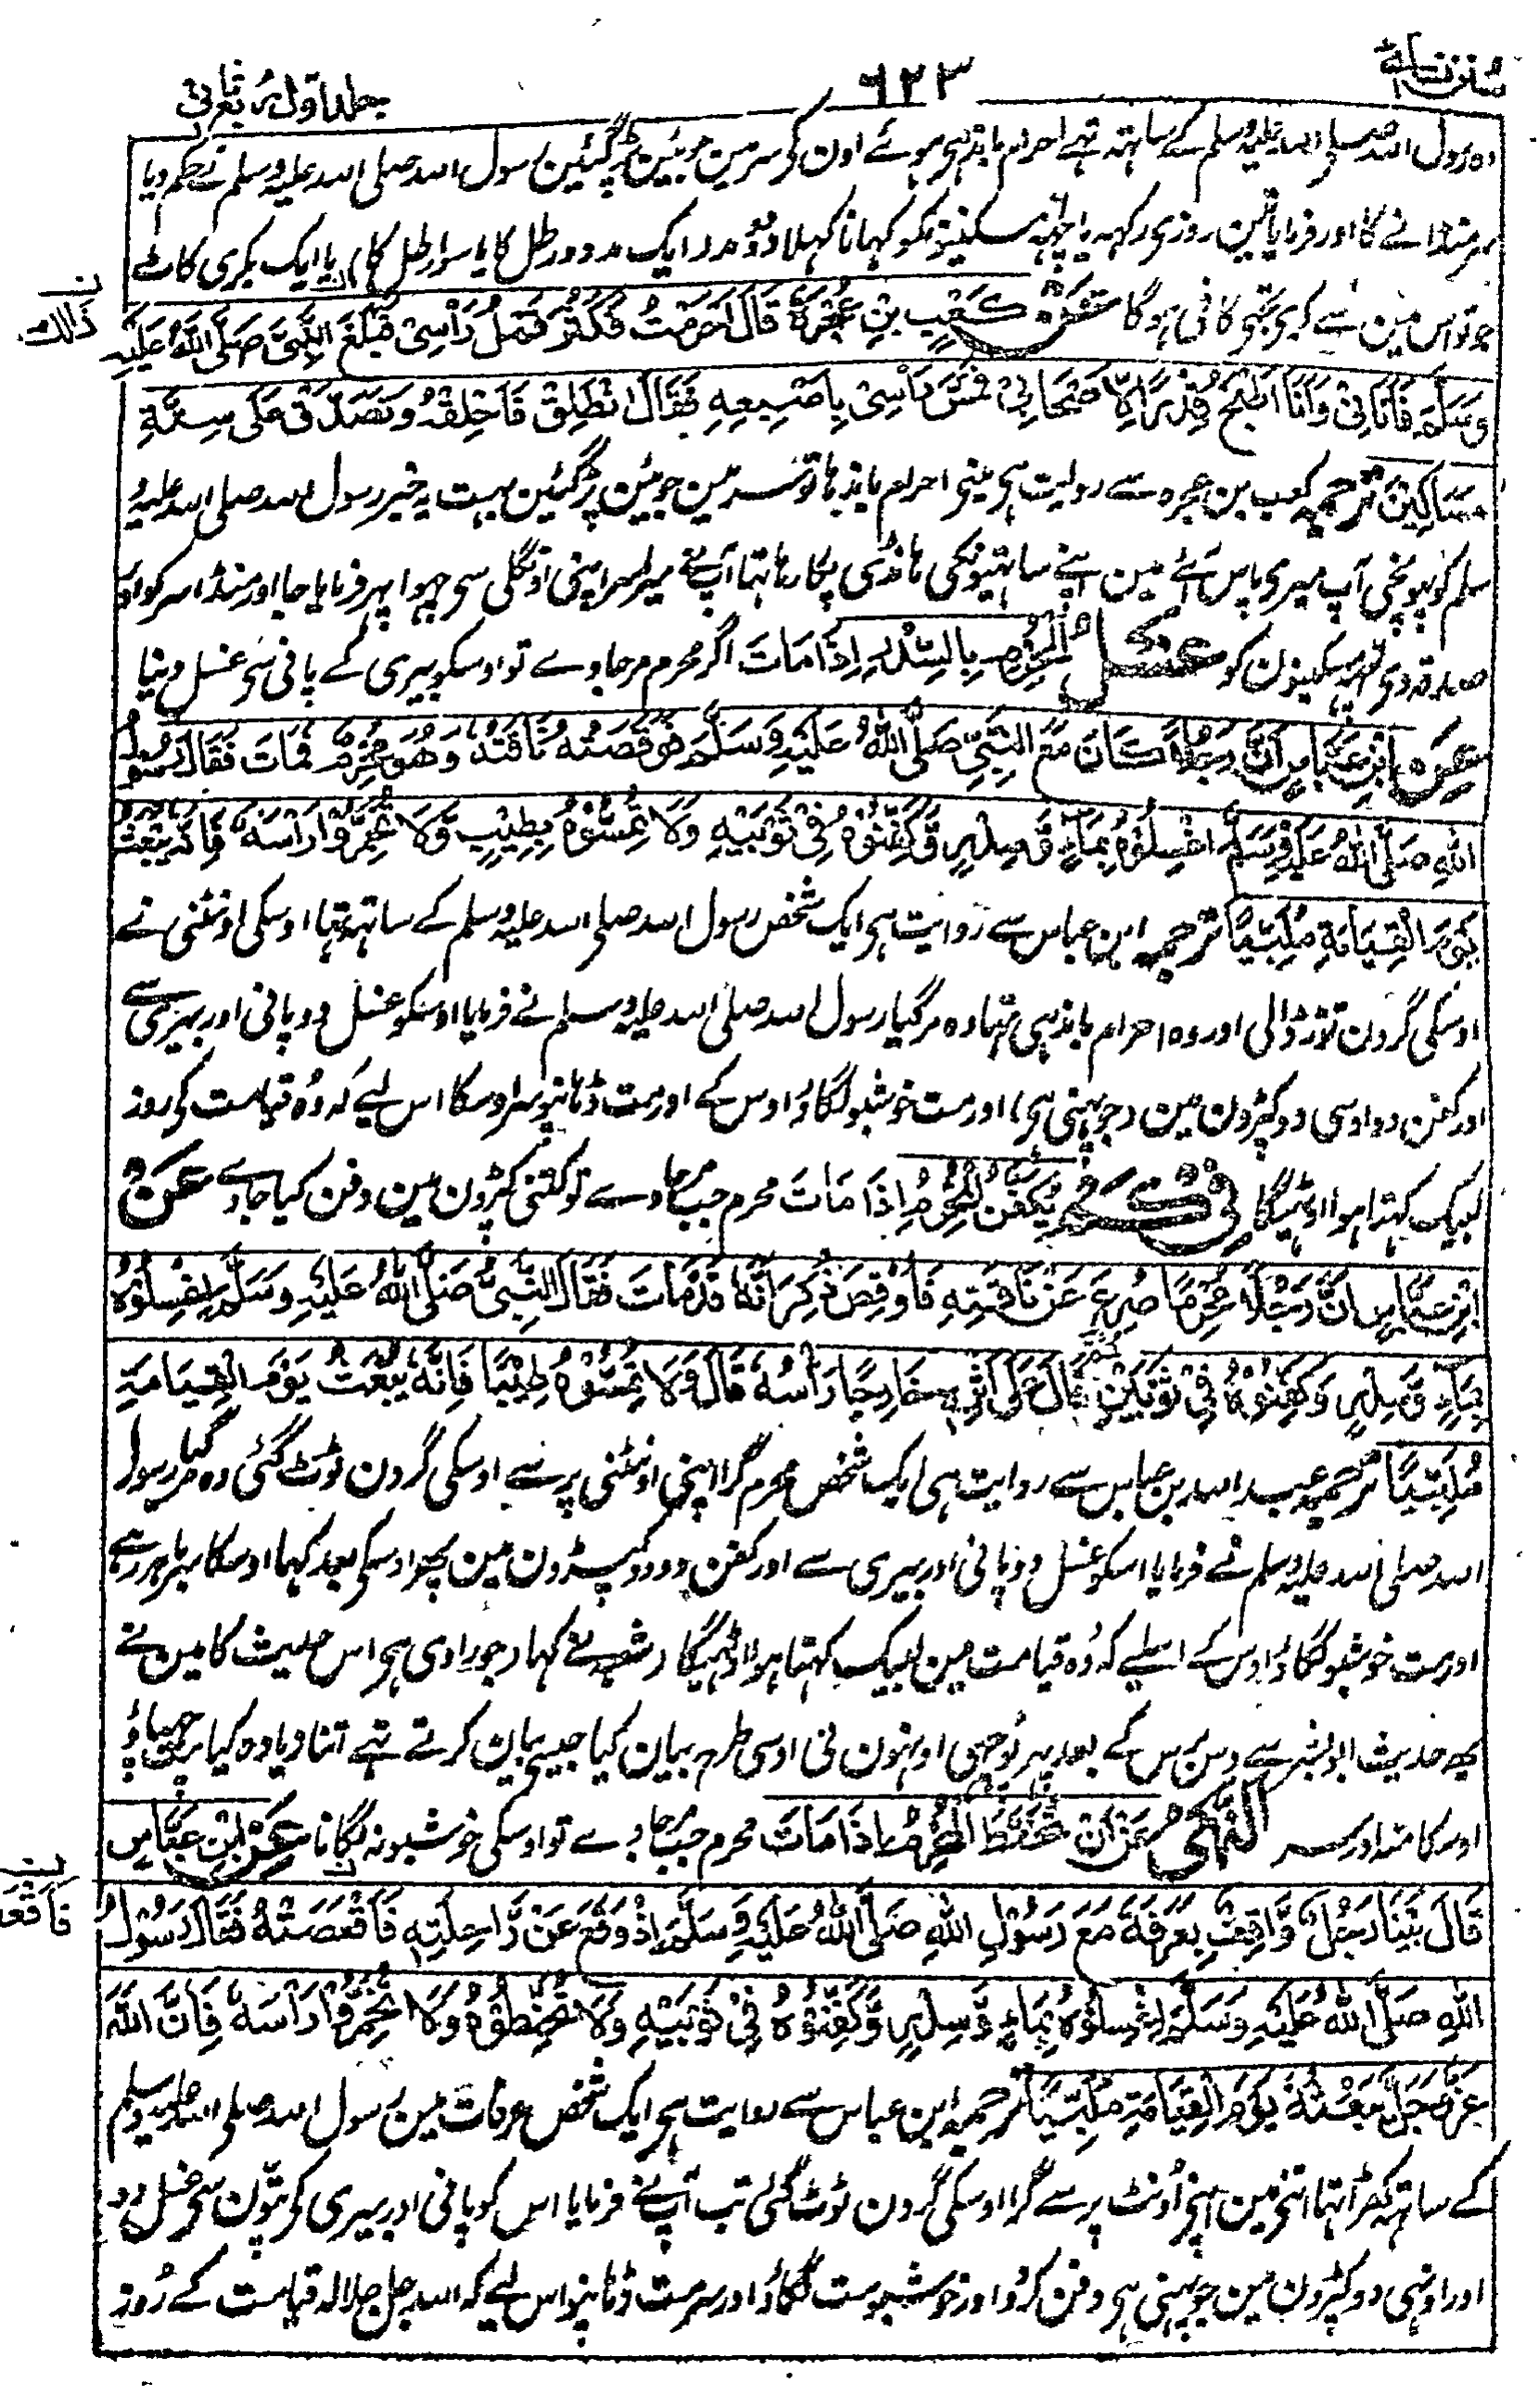 سنن نسائی
۶۲۳
جلد اول ربع ثانی
وہ رسول اللہ صلی اللہ علیہ وسلم کے ساتہہ تہے احرام باندہی ہوئے اون کی سر مین جوئین پڑ گئین رسول اللہ صلی اللہ علیہ وسلم نے حکم دیا
سر منڈانے کا اور فرمایا تین روزی رکہہ یا چہہ مسکینونکو کہانا کہلا دو دو مد (ایک مد دو رطل کا یا سوا رطل کا) یا ایک بکری کاٹ
جو تو اس مین سے کری تجہی کافی ہوگا عَنْ كَعْبِ بْنِ عُجْرَةَ قَالَ اَحْرَمْتُ فَكَثُرَ قَمْلُ رَأْسِيْ فَبَلَغَ ذٰلِكَ النَّبِيَّ صَلَّى اللّٰهُ عَلَيْهِ
وَسَلَّمَ فَاَتَانِيْ وَاَنَا اَطْبَخُ قِدْرًا لِاَصْحَابِيْ فَمَسَّ رَأْسِيْ بِاِصْبَعِهٖ فَقَالَ انْطَلِقْ فَاحْلِقْهُ وَتَصَدَّقْ عَلٰى سِتَّةِ
مَسَاكِيْنَ ترجمہ کعب بن عجرہ سے روایت ہی مینے احرام باندہا تو سر مین جوئین پڑ گئین بہت یہ خبر رسول اللہ صلی اللہ علیہ و
سلم کو پہونچی آپ میری پاس آئے مین اپنے ساتہیونکی ہانڈی پکا رہا تہا آپ نے میرا سر اپنی اونگلی سی چہوا پہر فرمایا جا اور منڈا سر کو اور
صدقہ دی چہہ مسکینون کو غُسْلُ الْمُحْرِمِ بِالسِّدْرِ اِذَا مَاتَ اگر محرم مر جاوے تو اوسکو بیری کے پانی سے غسل دینا
عَنِ ابْنِ عَبَّاسٍ اَنَّ رَجُلًا كَانَ مَعَ النَّبِيِّ صَلَّى اللّٰهُ عَلَيْهِ وَسَلَّمَ فَوَقَصَتْهُ نَاقَتُهٗ وَهُوَ مُحْرِمٌ فَمَاتَ فَقَالَ رَسُوْلُ
اللّٰهِ صَلَّى اللّٰهُ عَلَيْهِ وَسَلَّمَ اغْسِلُوْهُ بِمَاءٍ وَّسِدْرٍ وَّكَفِّنُوْهُ فِيْ ثَوْبَيْهِ وَلَا تُمِسُّوْهُ بِطِيْبٍ وَّلَا تُخَمِّرُوْا رَأْسَهٗ فَاِنَّهٗ يُبْعَثُ
يَوْمَ الْقِيَامَةِ مُلَبِّيًا ترجمہ ابن عباس سے روایت ہی ایک شخص رسول اللہ صلی اللہ علیہ وسلم کے ساتہہ تہا اوسکی اونٹنی نے
اوسکی گردن توڑ ڈالی اور وہ احرام باندہی تہا وہ مر گیا رسول اللہ صلی اللہ علیہ وسلم نے فرمایا اوسکو غسل دو پانی اور بیری سے
اور کفن دو اوسی دو کپڑون مین (جو پہنی ہی) اور مت خوشبو لگاؤ اوس کے اور مت ڈہانپو سر اوسکا اس لیے کہ وہ قیامت کی روز
لبیک کہتا ہوا اوٹہیگا فِيْ كَمْ يُكَفَّنُ الْمُحْرِمُ اِذَا مَاتَ محرم جب مر جاوے تو کتنی کپڑون مین دفن کیا جاوے عَنِ
ابْنِ عَبَّاسٍ اَنَّ رَجُلًا مُحْرِمًا صُرِعَ عَنْ نَاقَتِهٖ فَاُوْقِصَ ذُكِرَ اَنَّهٗ قَدْ مَاتَ فَقَالَ النَّبِيُّ صَلَّى اللّٰهُ عَلَيْهِ وَسَلَّمَ اغْسِلُوْهُ
بِمَاءٍ وَّسِدْرٍ وَكَفِّنُوْهُ فِيْ ثَوْبَيْنِ ثُمَّ قَالَ عَلٰى اَثْرِهٖ خَارِجًا رَأْسُهٗ قَالَ وَلَا تُمِسُّوْهُ طِيْبًا فَاِنَّهٗ يُبْعَثُ يَوْمَ الْقِيَامَةِ
مُلَبِّيًا ترجمہ عبد اللہ بن عباس سے روایت ہی ایک شخص محرم گرا اپنی اونٹنی پر سے اوسکی گردن ٹوٹ گئی وہ مر گیا رسول
اللہ صلی اللہ علیہ وسلم نے فرمایا اسکو غسل دو پانی اور بیری سے اور کفن دو دو کپڑون مین پہر اوسکی بعد کہا اوسکا سر باہر رہے
اور مت خوشبو لگاؤ اوس کے اسلیے کہ وہ قیامت مین لبیک کہتا ہوا اوٹہیگا شعبہ نے کہا (جو راوی ہی اس حدیث کا) مین نے
یہ حدیث ابو بشر سے دس برس کے بعد پہر پوچہی اونہون نی اوسی طرح بیان کیا جیسی بیان کرتے تہے اتنا زیادہ کیا مت چہپاؤ
اوسکا منہ اور سر النَّهْيُ عَنْ اَنْ يُحَنَّطَ الْمُحْرِمُ اِذَا مَاتَ محرم جب مر جاوے تو اوسکی خوشبو نہ لگانا عَنِ ابْنِ عَبَّاسٍ
قَالَ بَيْنَا رَجُلٌ وَّاقِفٌ بِعَرَفَةَ مَعَ رَسُوْلِ اللّٰهِ صَلَّى اللّٰهُ عَلَيْهِ وَسَلَّمَ اِذْ وَقَعَ عَنْ رَّاحِلَتِهٖ فَاَقْعَصَتْهُ فَقَالَ رَسُوْلُ
اللّٰهِ صَلَّى اللّٰهُ عَلَيْهِ وَسَلَّمَ اغْسِلُوْهُ بِمَاءٍ وَّسِدْرٍ وَّكَفِّنُوْهُ فِيْ ثَوْبَيْهِ وَلَا تُحَنِّطُوْهُ وَلَا تُخَمِّرُوْا رَأْسَهٗ فَاِنَّ اللّٰهَ
عَزَّ وَجَلَّ يَبْعَثُهٗ يَوْمَ الْقِيَامَةِ مُلَبِّيًا ترجمہ ابن عباس سے روایت ہی ایک شخص عرفات مین رسول اللہ صلی اللہ علیہ وسلم
کے ساتہہ کہڑا تہا اتنی مین اپنی اونٹ پر سے گرا اوسکی گردن ٹوٹ گئی تب آپ نے فرمایا اس کو پانی اور بیری کی پتون سی غسل دو
اور اونہی دو کپڑون مین جو پہنی ہی دفن کرو اور خوشبو مت لگاؤ اور سر مت ڈہانپو اس لیے کہ اللہ جل جلالہ قیامت کے روز